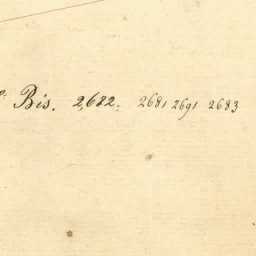 Bis. 2682. 2681 2691 2683